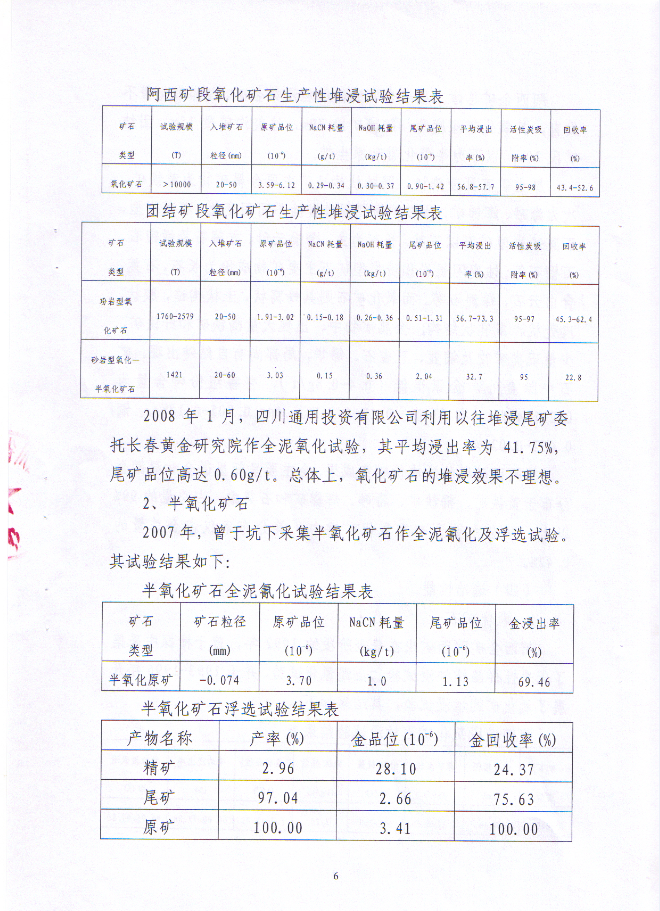 阿西矿段氧化矿石生产性堆浸试验结果表
矿石类型 试验规模(T) 入堆矿石粒径(mm) 原矿品位(10⁻⁶) NaCN耗量(g/t) NaOH耗量(kg/t) 尾矿品位(10⁻⁶) 平均浸出率(%) 活性炭吸附率(%) 回收率(%)
氧化矿石 >10000 20-50 3.59-6.12 0.29-0.34 0.30-0.37 0.90-1.42 56.8-57.7 95-98 43.4-52.6
团结矿段氧化矿石生产性堆浸试验结果表
矿石类型 试验规模(T) 入堆矿石粒径(mm) 原矿品位(10⁻⁶) NaCN耗量(g/t) NaOH耗量(kg/t) 尾矿品位(10⁻⁶) 平均浸出率(%) 活性炭吸附率(%) 回收率(%)
岩型氧化矿石 1760-2579 20-50 1.91-3.02 0.15-0.18 0.26-0.36 0.51-1.31 56.7-73.3 95-97 45.3-62.4
砂岩型氧化—半氧化矿石 1421 20-60 3.03 0.15 0.36 2.04 32.7 95 22.8
2008 年 1 月，四川通用投资有限公司利用以往堆浸尾矿委
托长春黄金研究院作全泥氧化试验，其平均浸出率为 41.75%,
尾矿品位高达 0.60g/t。总体上，氧化矿石的堆浸效果不理想。
2、半氧化矿石
2007 年，曾于坑下采集半氧化矿石作全泥氰化及浮选试验。
其试验结果如下:
半氧化矿石全泥氰化试验结果表
矿石类型 矿石粒径(mm) 原矿品位(10⁻⁶) NaCN耗量(kg/t) 尾矿品位(10⁻⁶) 金浸出率(%)
半氧化原矿 -0.074 3.70 1.0 1.13 69.46
半氧化矿石浮选试验结果表
产物名称 产率(%) 金品位(10⁻⁶) 金回收率(%)
精矿 2.96 28.10 24.37
尾矿 97.04 2.66 75.63
原矿 100.00 3.41 100.00
6